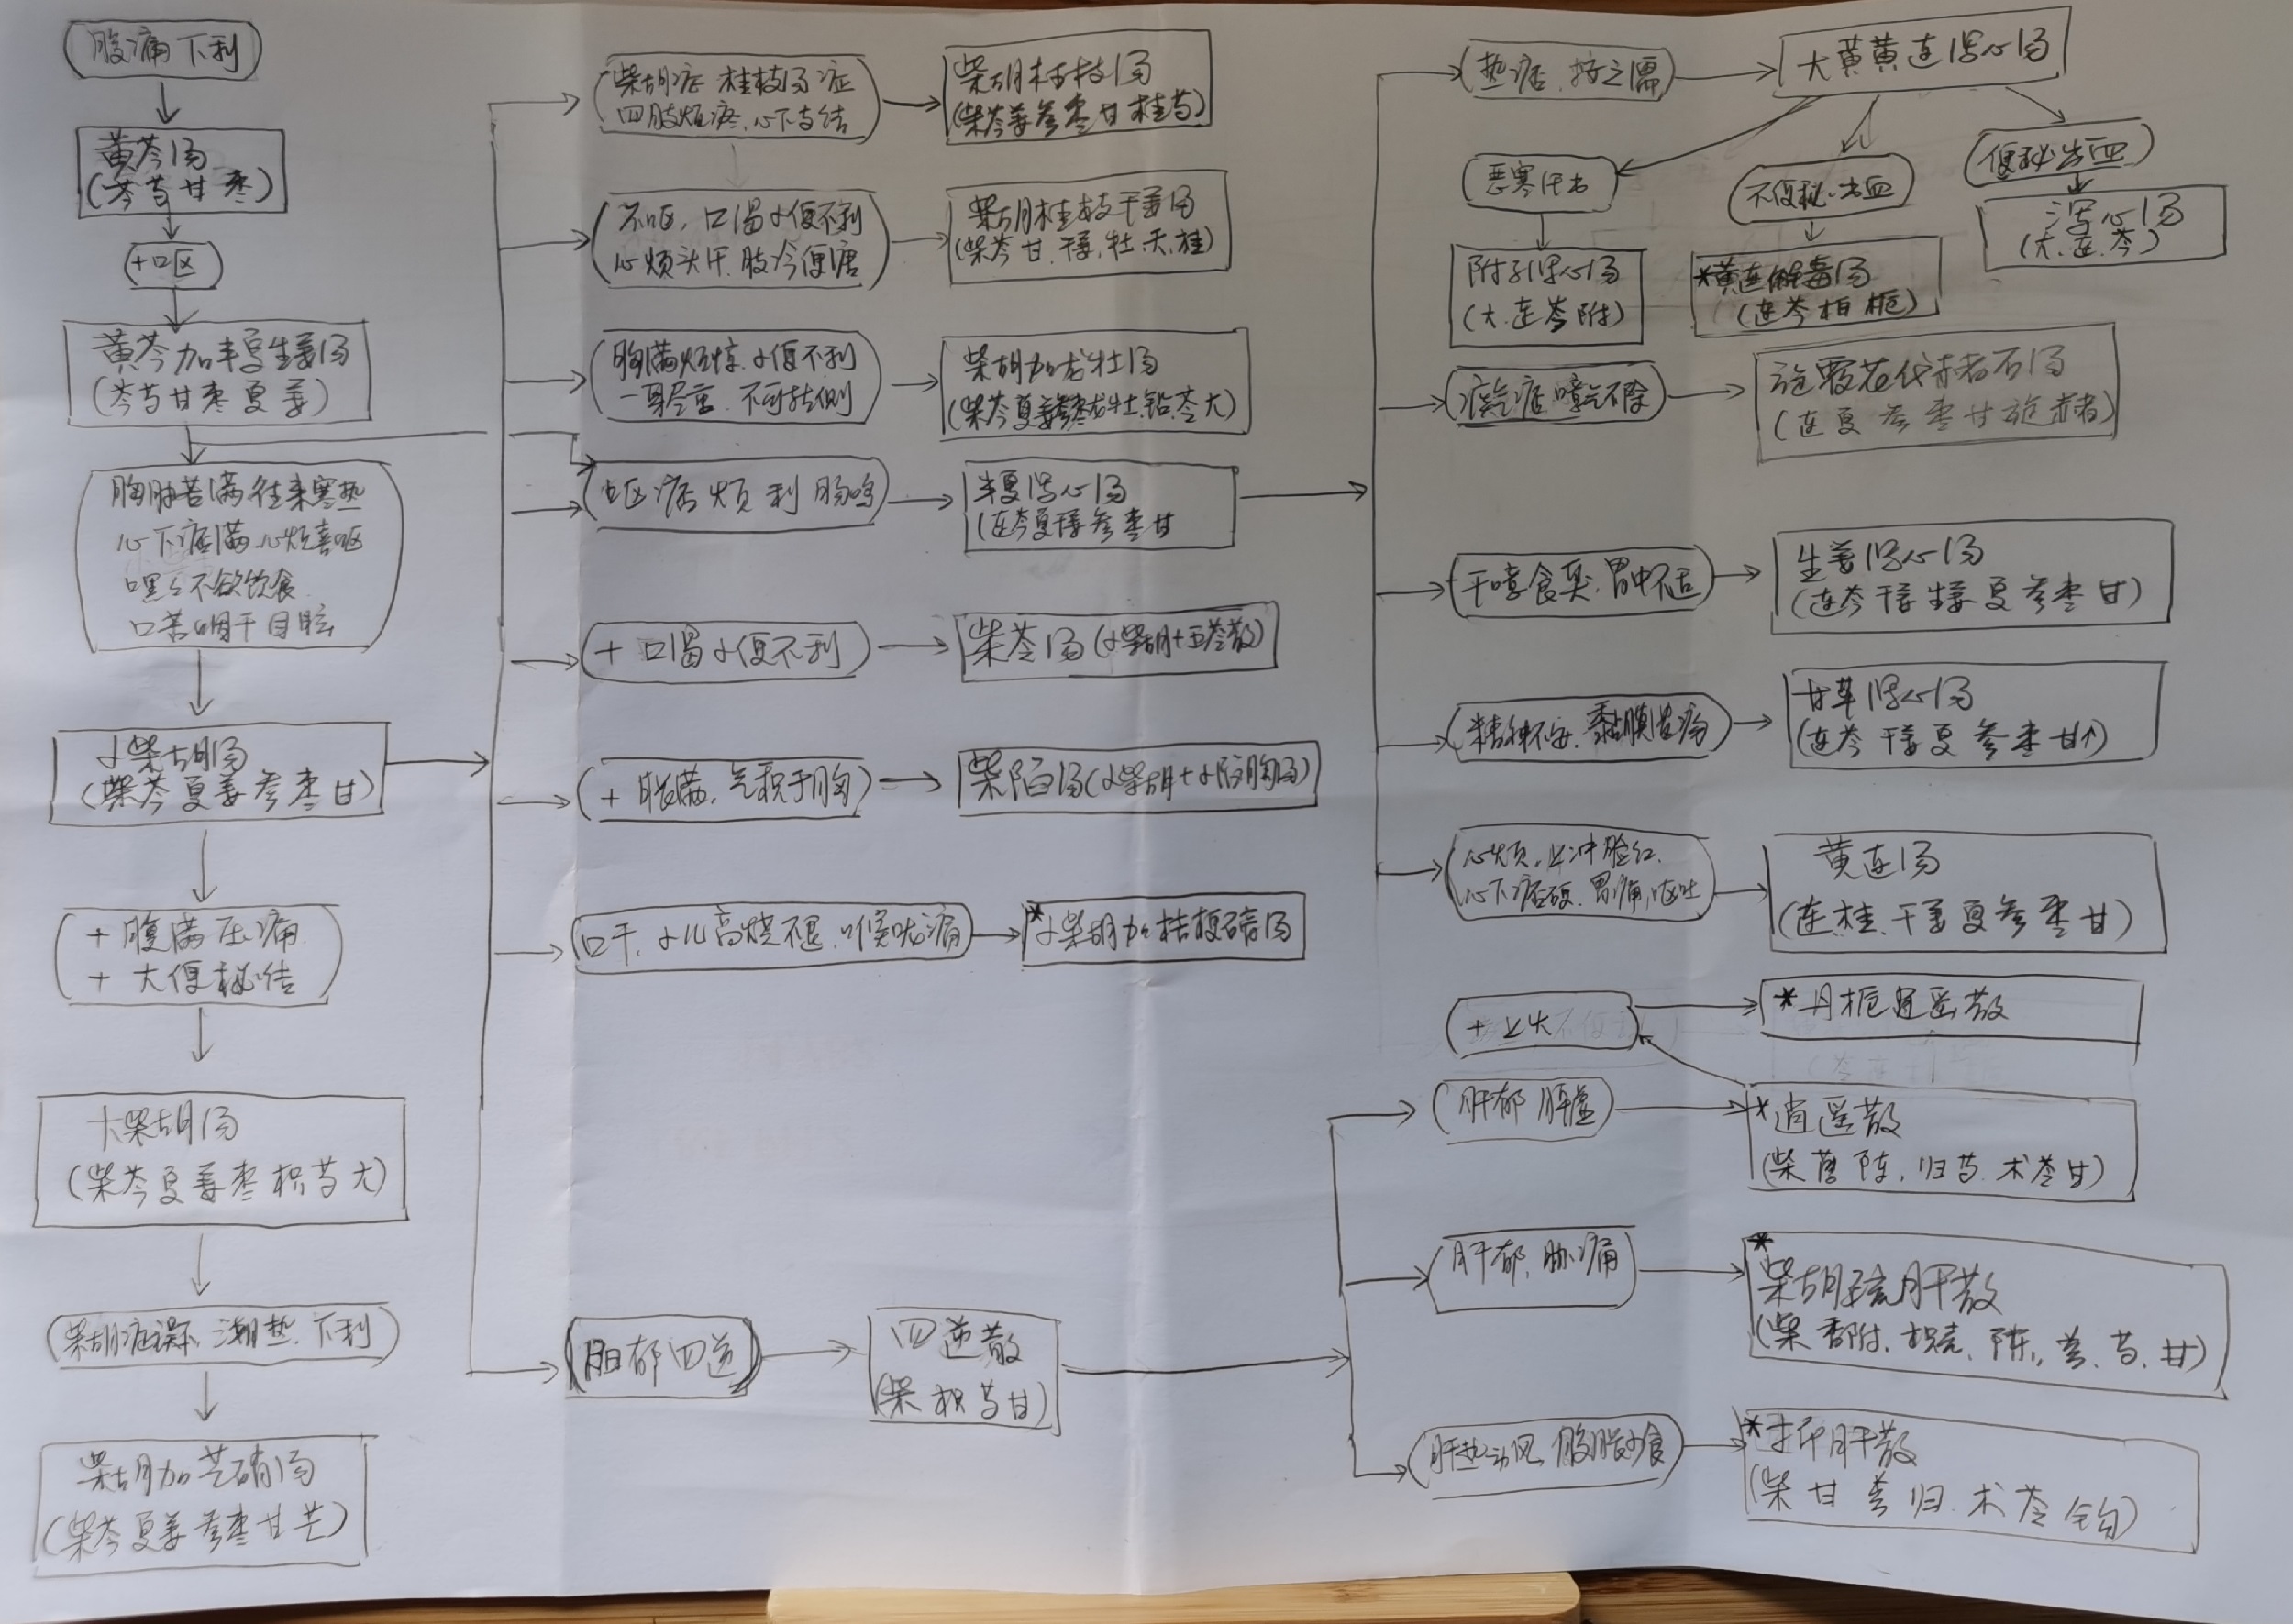 腹痛下利
黄芩汤
(芩芍甘枣)
+呕
黄芩加半夏生姜汤
(芩芍甘枣夏姜)
胸胁苦满往来寒热
心下痞满.心烦喜呕
嘿々不欲饮食.
口苦咽干目眩
小柴胡汤
(柴芩夏姜参枣甘)
+腹满压痛
+大便秘结
大柴胡汤
(柴芩夏姜枣枳芍大)
柴胡症误下.潮热.下利
柴胡加芒硝汤
(柴芩夏姜参枣甘芒)
柴胡症 桂枝汤症
四肢烦疼.心下支结
柴胡桂枝汤
(柴芩姜参枣甘桂芍)
不呕,口渴小便不利
心烦头汗.肢冷便溏
柴胡桂枝干姜汤
(柴芩甘.干姜,牡.天.桂)
胸满烦惊.小便不利
一身尽重.不可转侧
柴胡加龙牡汤
(柴芩夏姜参枣桂龙牡.铅.苓大)
呕痞烦利肠鸣
半夏泻心汤
(连芩夏干姜参枣甘
+口渴小便不利
柴苓汤(小柴胡+五苓散)
+胀满.气积于胸
柴陷汤(小柴胡+小陷胸汤)
口干.小儿高烧不退.喉咙痛
*小柴胡加桔梗石膏汤
胆郁四逆
四逆散
(柴枳芍甘)
热痞.按之濡
大黄黄连泻心汤
恶寒汗出
附子泻心汤
(大.连芩附)
不便秘.出血
*黄连解毒汤
(连芩柏栀)
便秘出血
泻心汤
(大.连.芩)
痰气痞噫气不除
旋覆花代赭石汤
干噫食臭.胃中不舌
生姜泻心汤
(连芩干姜生姜夏参枣甘)
精神不安.黏膜溃疡
甘草泻心汤
(连芩干姜夏参枣甘↑)
心烦.上冲脸红.
心下痞硬.胃痛.呕吐
黄连汤
(连桂.干姜夏参枣甘)
+上火
*丹栀逍遥散
肝郁脾虚
*逍遥散
(柴薄陈.归芍.术苓甘)
肝郁.胁痛
*
柴胡疏肝散
(柴香附.枳壳.陈.芎.芍.甘)
肝热动风 腹胀少食
*抑肝散
(柴甘芎归.术苓钩)